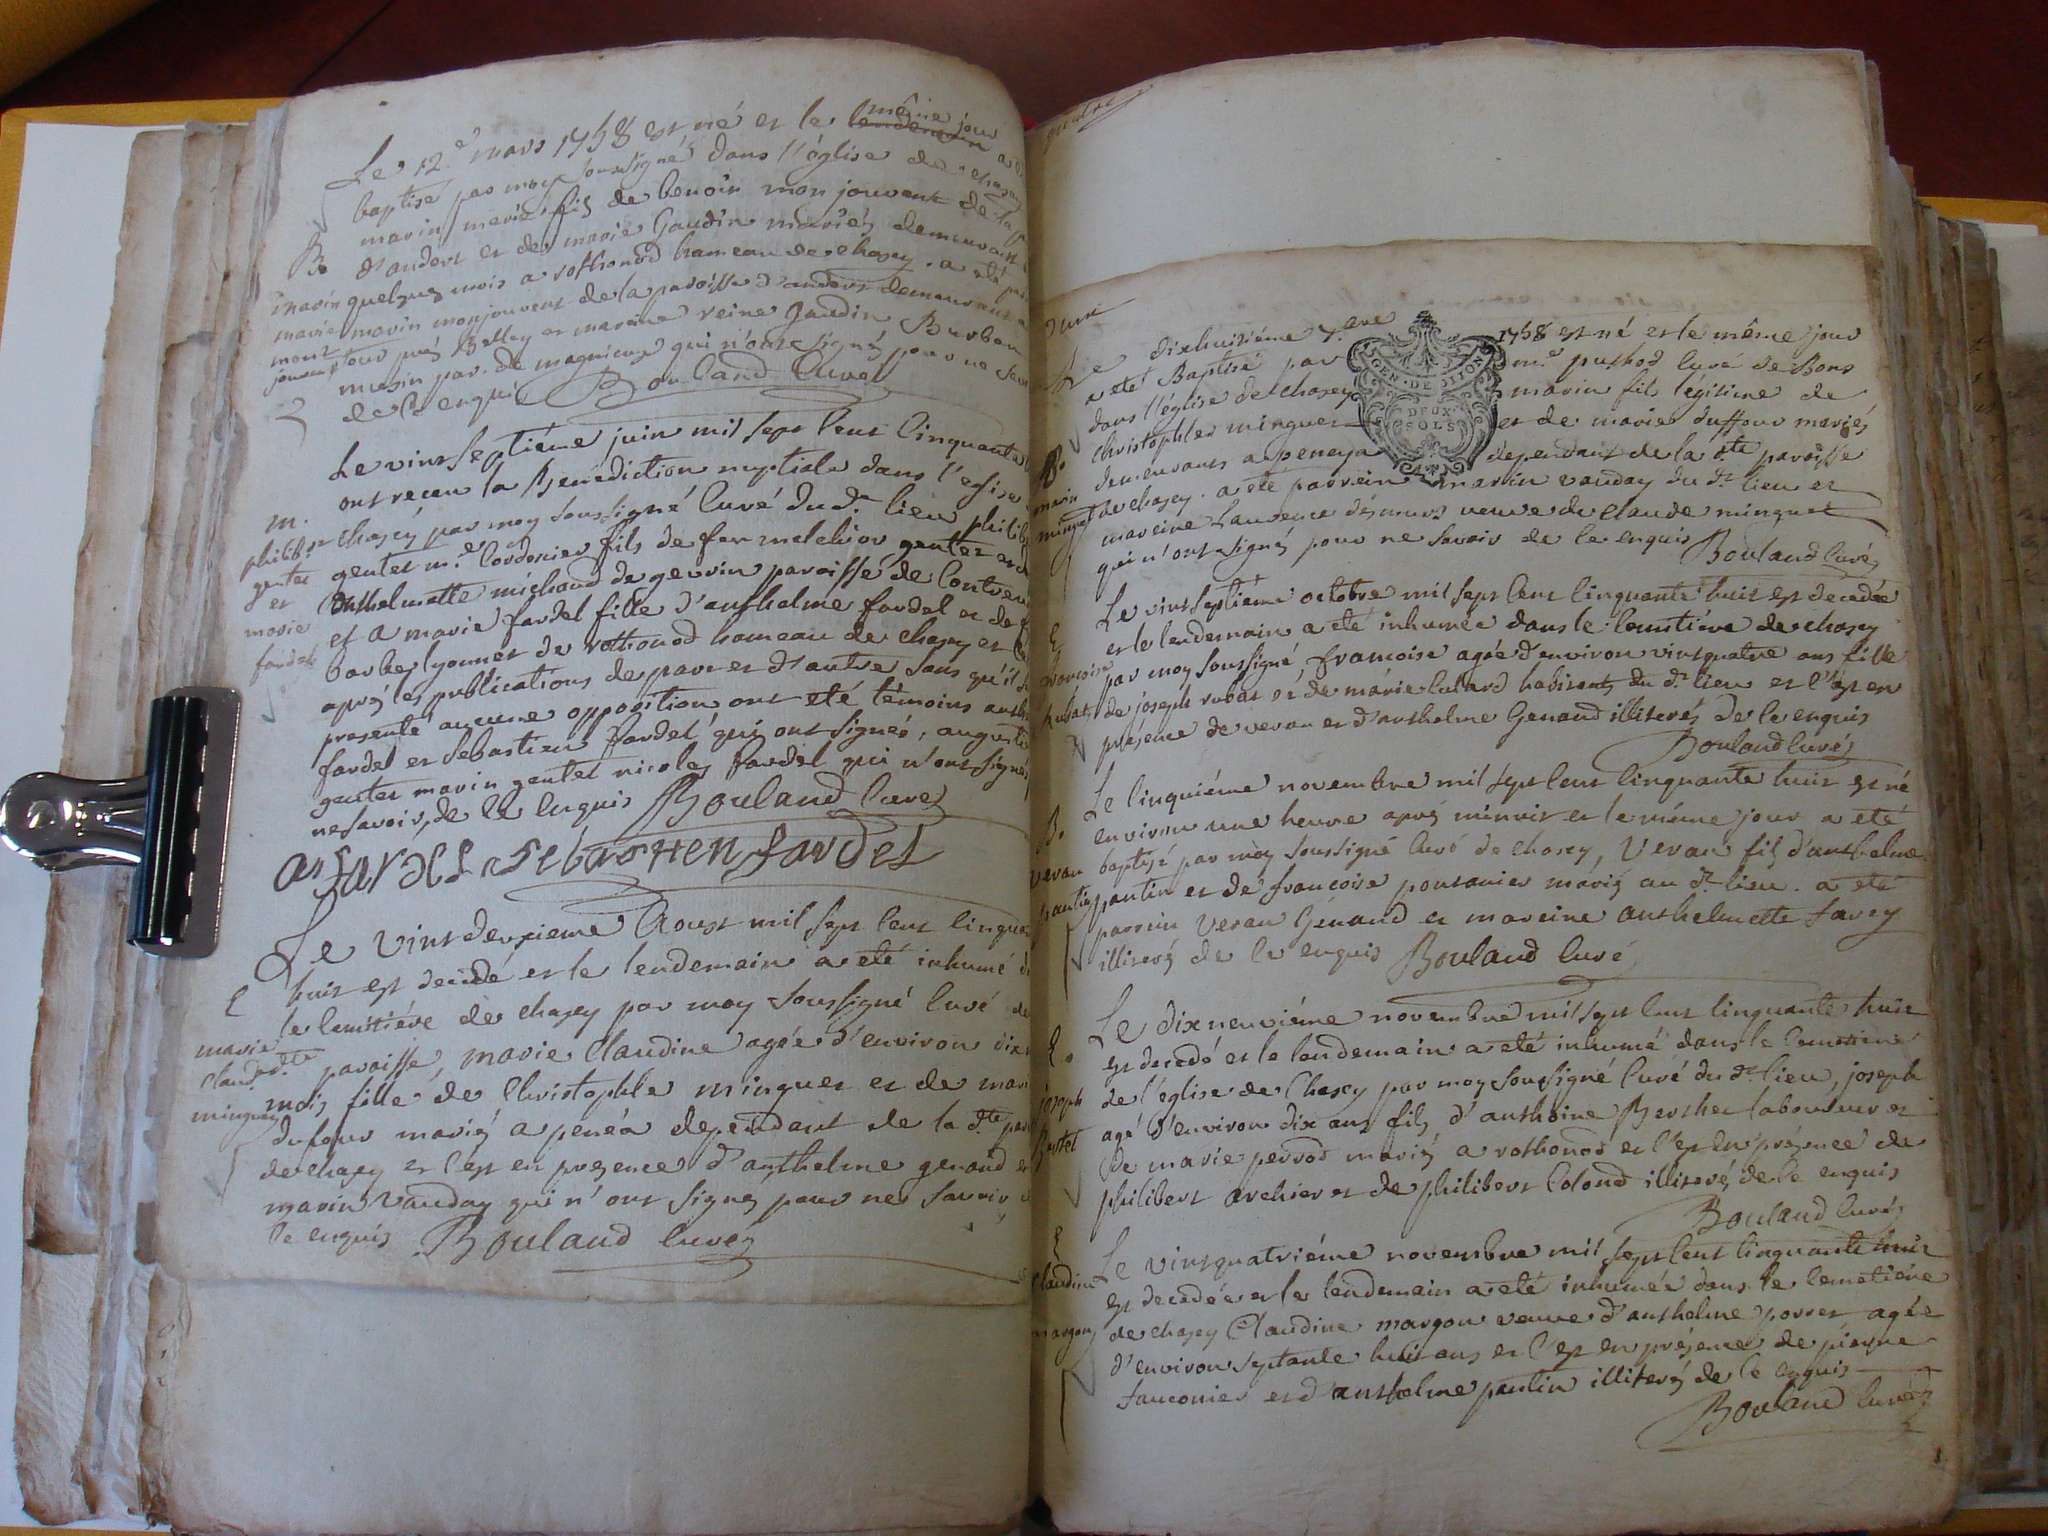 Le 12e mars 1758 est né et le même jour a
baptisé par moy soussigné dans l'église de chasey
marin marie fils de benoir monjouvent de la
B. d'andert et de marie Gaudin mariés demeurant
marin quelques mois a rothonod hameau de chasey. a eté
marie marin monjouvent de la paroisse d'andert demeurant
mont jouvent pres Belley et mareine reine gaudin
par. de magnieux qui n'ont signé pour ne
de ce enquis Bouland Curé
Le vint septième juin mil sept cent cinquante
ont receu la Benediction nuptiale dans l'église
m. chasey par moy soussigné Curé du dt lieu philib
philibt gentet me Cordonier fils de feu melchior gentet
gentet anthelmette michaud de gevrin paroisse de Contrev
et et a marie fardel fille d'anthelme fardel et de
marie barbe lyonnet de rothonod hameau de chasey et
fardel après les publications de part et d'autre sans qu'il
presenté aucune opposition ont eté témoins anth
fardel et sebastien fardel qui ont signés, augusti
gentet marin gentet nicolas fardel qui n'ont signés
ne savoir de ce enquis Bouland Curé
as fardel sebastien fardel
Le vint deuxieme Aoust mil sept cent cinqua
E huit est decedé et le lendemain a eté inhumé
le cemitiére de chasey par moy soussigné Curé de
marie dte paroisse, marie Claudine agée d'environ
claud. mois fille de Christophle minguet et de mari
minguet dufour mariés a penéa dependant de la dte par
de chasey et c'est en presence d'anthelme genand et
marin Vauday qui n'ont signés pour ne savoir
ce enquis Bouland Curé
GEN. DE DIJON
DEUX SOLS
Le dixhuitiéme 7bre 1758 est né et le même jour
a eté Baptisé par mre puthod Curé de Bons
dans l'église de chasey marin fils légitime de
B. christophle minguet et de marie duffour mariés
demeurants a peneya dépendant de la dte paroisse
marin de chasey. a eté parrein marin vauday du dt lieu et
minguet mareine Laurence desmurs veuve de claude minguet
qui n'ont signés pour ne savoir de ce enquis Bouland Curé
Le vintseptiéme octobre mil sept cent cinquante huit est decedée
E et le lendemain a eté inhumée dans le Cemitiére de chasey
francoise par moy soussigné, francoise agée d'environ vintquatre ans fille
rubat de joseph rubat et de marie habitants du dt lieu et c'est en
présence de veran et d'anthelme Genand illiterés de ce enquis
Bouland Curé
Le cinquiéme novembre mil sept cent cinquante huit est né
B. environ une heure après minuit et le même jour a eté
veran baptisé par moy soussigné Curé de chasey, Veran fils d'anthelme
pantin pantin et de francoise mariés au dt lieu. a eté
parrein Veran Génand et mareine anthelmette favey
illiterés de ce enquis Bouland Curé
Le dixneuviéme novembre mil sept cent cinquante huit
E. est decedé et le lendemain a eté inhumé dans le Cemitiére
joseph de l'église de Chasey par moy soussigné Curé du dt lieu, joseph
agé d'environ dix ans fils d'anthoine Berthet laboureur et
de marie perrod mariés a rothonod et c'est en présence de
philibert archier et de philibert Colond illiterés de ce enquis
Bouland Curé
E Le vintquatriéme novembre mil sept cent cinquante huit
Claudine est decedée et le lendemain a eté inhumée dans le Cemitiére
margon de chasey Claudine margon veuve d'anthelme agée
d'environ septante huit ans et c'est en présence de pierre
fauconier et d'anthelme pantin illiterés de ce enquis
Bouland Curé